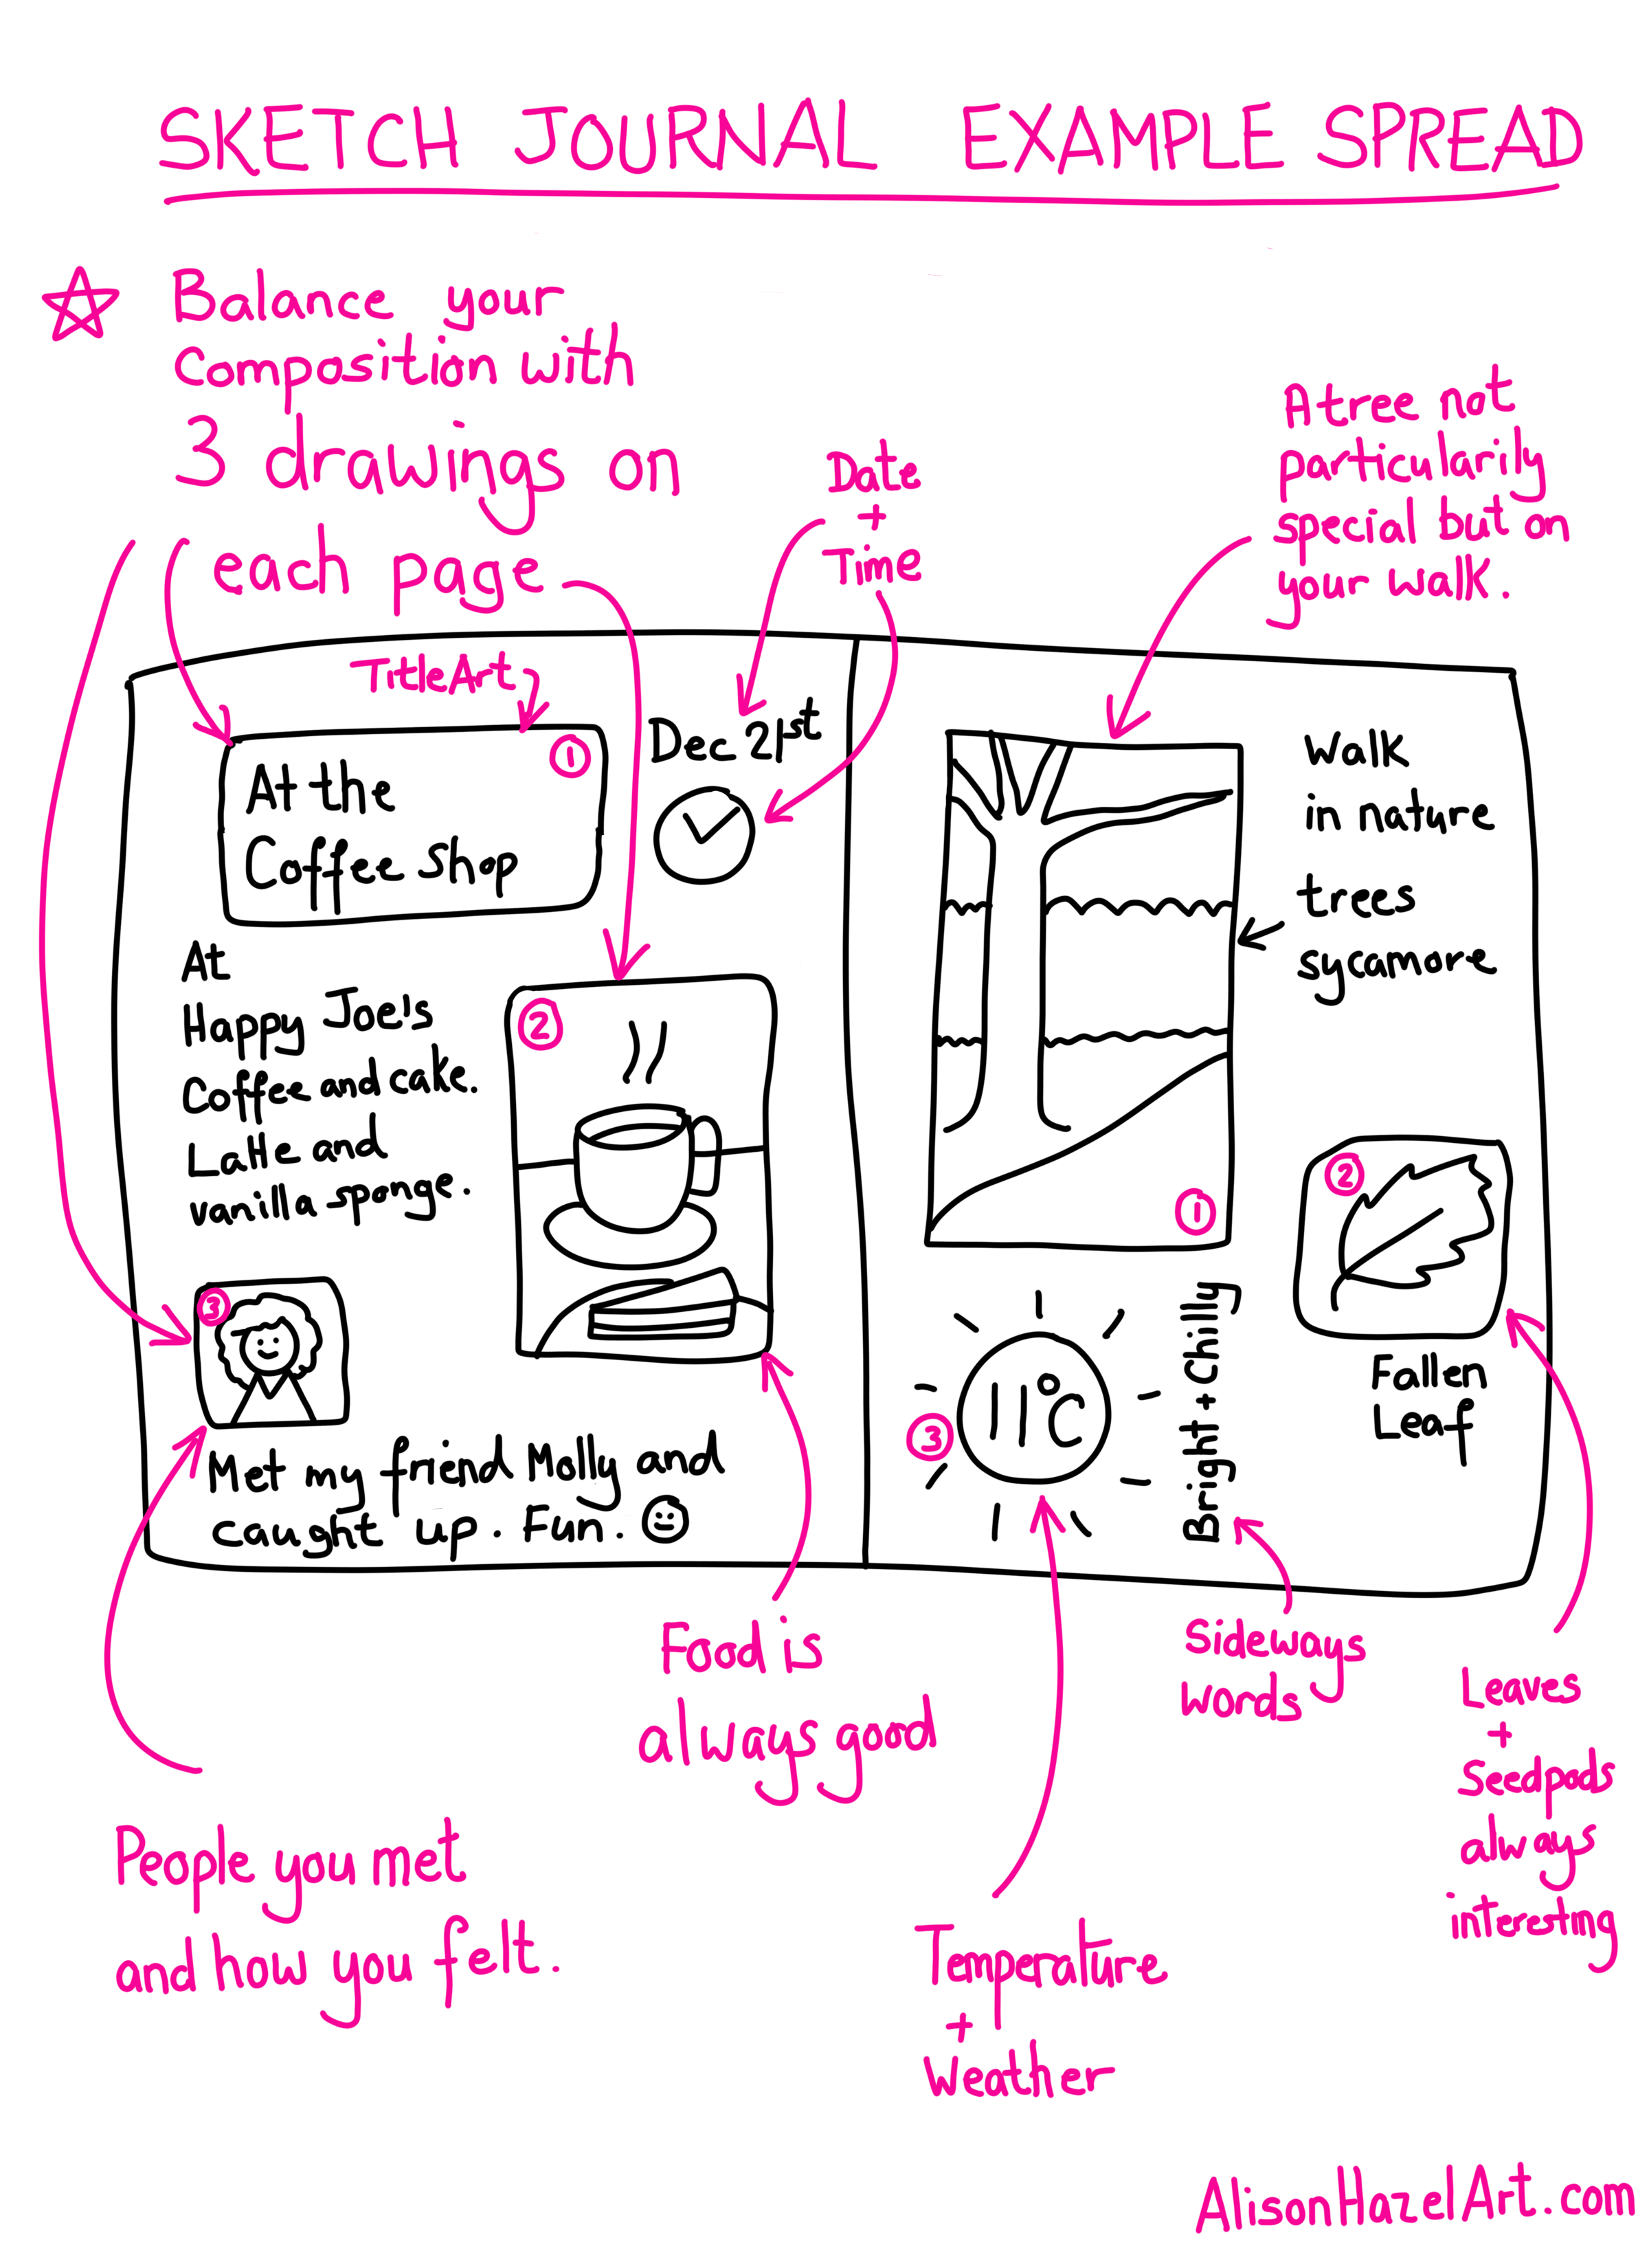 SKETCH JOURNAL EXAMPLE SPREAD
Balance your
Composition with
3 drawings on
each page
Date
+
Time
A tree not
particularily
special but on
your walk.
Title Art
At the
Coffee Shop
1
Dec 21st
At
Happy Joe's
Coffee and cake.
Latte and
vanilla sponge.
2
3
Met my friend Molly and
caught up. Fun.
Walk
in nature
trees
sycamore
1
2
Fallen
Leaf
3
11°C
Bright + Chilly
People you met
and how you felt.
Food is
always good
Temperature
+
Weather
Sideways
Words
Leaves
+
Seedpods
always
interesting
AlisonHazelArt.com